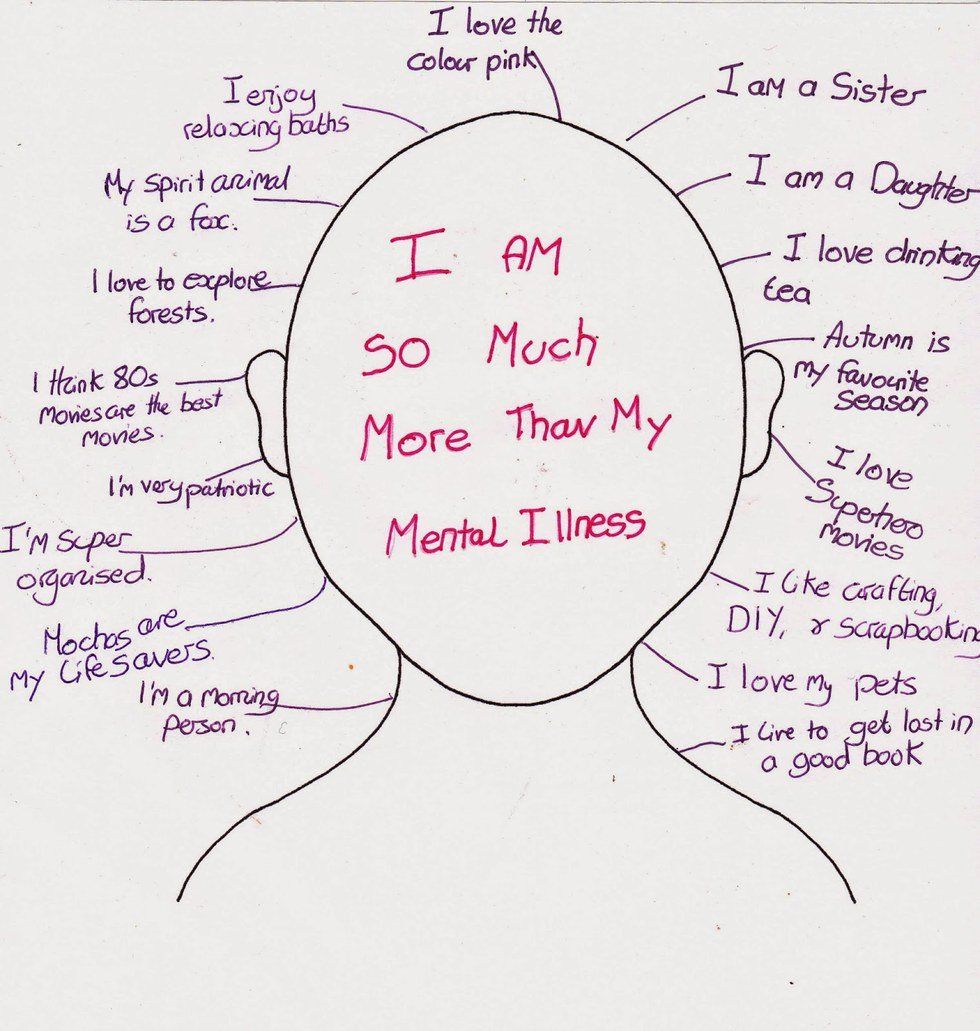 I love the
colour pink
I enjoy
relaxing baths
My spirit animal
is a fox.
I love to explore
forests.
I think 80s
Movies are the best
Movies.
I'm very patriotic
I'M super
organised.
Mochas are
My Lifesavers.
I'm a Morning
Person.
I AM
So Much
More Than My
Mental Illness
I am a Sister
I am a Daughter
I love drinking
tea
Autumn is
My favourite
Season
I love
Superhero
Movies
I like crafting,
DIY, & scrapbooking
I love my pets
I Live to get lost in
a good book